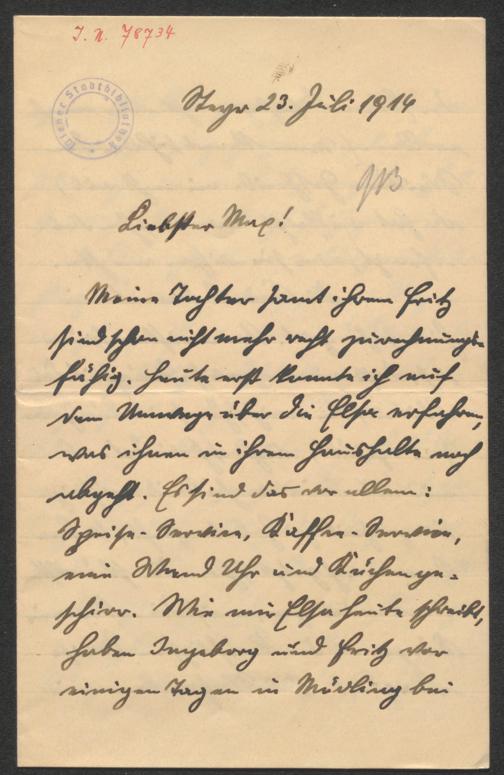 I. N. 78734
Wiener Stadtbibliothek
Steyr 23. Juli 1914
Liebster Max!
Meine Tochter samt ihrem Fritz
sind schon nicht mehr recht zurechnungs-
fähig. Heute erst konnte ich auf
dem Umwege über die Elsa erfahren,
was ihnen in ihrem Haushalte noch
abgeht. Es sind das vor allem:
Speise-Service, Kaffee-Service,
eine Wand Uhr und Küchenge-
schirr. Wie mir Elsa heute schreibt,
haben Ingeborg und Fritz vor
einigen Tagen in Mödling bei